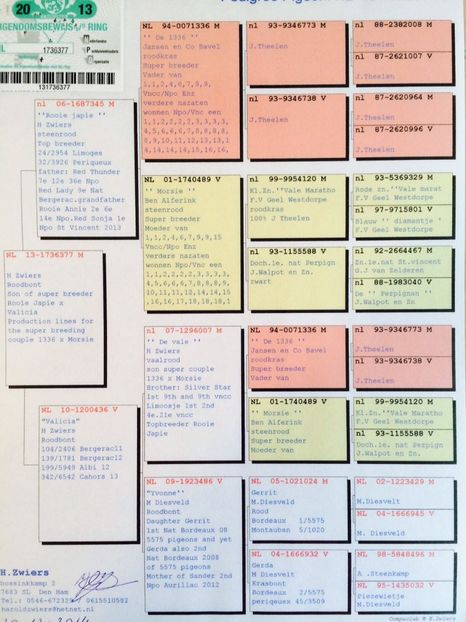 20 13
EIGENDOMSBEWIJS RING
NL 1736377
131736377
nl 06-1687345 M
''Rooie japie ''
H Zwiers
steenrood
Top breeder
24/2954 Limoges
32/3926 Perigueux
father: Red Thunder
7e 12e 36e Npo
Red Lady 9e Nat
Bergerac.grandfather
Rooie Annie 2e 6e
14e Npo.Red Sonja 1e
Npo St Vincent 2013
NL 13-1736377 M
H Zwiers
Roodbont
Son of super breeder
Rooie Japie x
Valicia
Production lines for
the super breeding
couple 1336 x Morsie
NL 10-1200436 V
"Valicia"
H Zwiers
Roodbont
104/2406 Bergerac11
139/1781 Bergerac12
199/5949 Albi 12
342/6542 Cahors 13
H.Zwiers
7683 SL Den Ham
Tel.: 0546-672339 / 0615510582
haroldzwiers@hetnet.nl
NL 94-0071336 M
'' De 1336 ''
Jansen en Co Bavel
roodkras
Super breeder
Vader van
1,1,2,4,6,7,9,9,
Vncc/Npo Enz
verdere nazaten
wonnen Npo/Vnc een
1,1,2,2,2,2,3,3,3,3,
4,5,6,6,6,7,8,8,8,8,
8,9,10,11,12,13,13,1
4,14,14,14,15,15,16,
NL 01-1740489 V
'' Morsie ''
Ben Alferink
steenrood
Super breeder
Moeder van
1,1,2,4,6,7,9,9,15
Vncc/Npo Enz
verdere nazaten
wonnen Npo/Vnc een
1,1,2,2,2,2,3,3,3,3,
4,5,6,6,6,7,8,8,8,8,
9,10,11,11,12,14,14,15
,16,16,17,18,18,18,1
nl 07-1296007 M
'' De vale ''
H Zwiers
vaalrood
son super couple
1336 x Morsie
Brother: Silver Star
1st 9th and 9th vncc
Limoosje 1st 2nd
4e.21e vncc
Topbreeder Rooie
Japie
NL 09-1923486 V
"Yvonne"
M Diesveld
Roodbont
Daughter Gerrit
1st Nat Bordeaux 08
5575 pigeons and yet
Gerda also 2nd
Nat Bordeaux 2008
of 5575 pigeons
Mother of Sander 2nd
Npo Aurillac 2012
nl 93-9346773 M
J.Theelen
nl 93-9346738 V
J.Theelen
nl 99-9954120 M
Kl.Zn.''Vale Maratho
F.V Geel Westdorpe
roodkras
100% J Theelen
nl 93-1155588 V
Doch.le. nat Perpign
J.Walpot en Zn.
zwart
NL 94-0071336 M
'' De 1336 ''
Jansen en Co Bavel
roodkras
Super breeder
Vader van
NL 01-1740489 V
'' Morsie ''
Ben Alferink
steenrood
Super breeder
Moeder van
NL 05-1021024 M
Gerrit
M Diesveld
Rood
Bordeaux 1/5575
Montauben 5/1020
NL 04-1666932 V
Gerda
M Diesveld
Krasbont
Bordeaux 2/5575
perigueux 45/3509
nl 88-2382008 M
J.Theelen
nl 87-2621007 V
J.Theelen
nl 87-2620964 M
J.Theelen
nl 87-2620996 V
J.Theelen
nl 93-5369329 M
Rode zn.''Vale marat
F.V Geel Westdorpe
nl 97-9715801 V
Blauw '' diamantje '
F.V Geel Westdorpe
nl 92-2664467 M
Zn.le.nat St.vincent
G.J van Zelderen
nl 88-1983040 V
De '' Perpignan ''
J.Walpot en Zn
nl 93-9346773 M
J.Theelen
nl 93-9346738 V
J.Theelen
nl 99-9954120 M
Kl.Zn.''Vale Maratho
F.V Geel Westdorpe
nl 93-1155588 V
Doch.le. nat Perpign
J.Walpot en Zn.
NL 02-1223429 M
M.Diesvelt
NL 04-1666945 V
M. Diesveld
NL 98-5848496 M
A .Steenkamp
NL 95-1435032 V
Piezewietje
M.Diesveld
Compuclub © H.Zwiers